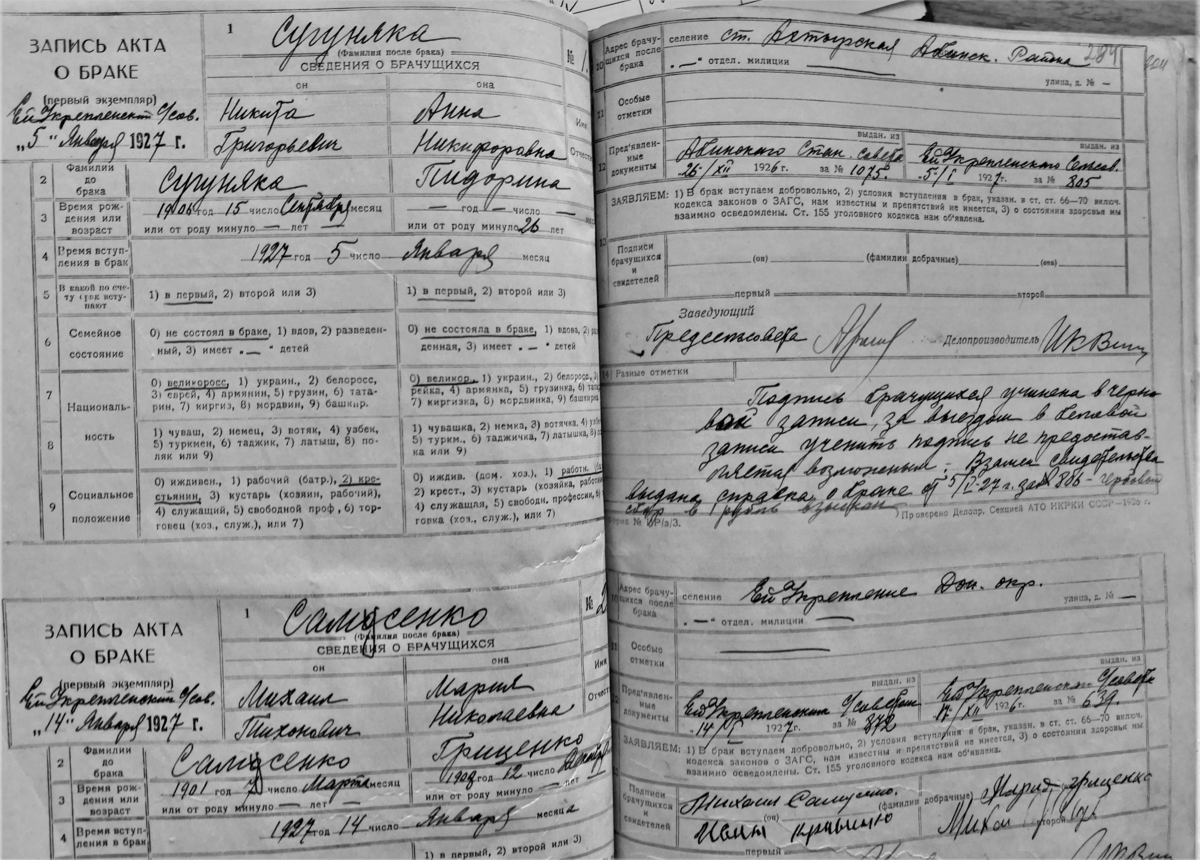 ЗАПИСЬ АКТА
О БРАКЕ
(первый экземпляр)
Ей Укрепленский С/сов.
„5" Января 1927 г.
1
Сугуняка
(Фамилия после брака)
№ 1
СВЕДЕНИЯ О БРАЧУЩИХСЯ
он она
Никита Анна
Имя
Григорьевич Никифоровна
Отчест
2 Фамилии до брака Сугуняка Пидорина
3 Время рождения или возраст
год 15 число Сентября месяц — год — число —
или от роду минуло — лет или от роду минуло 26 лет
4 Время вступления в брак 1927 год 5 число Января месяц
5 В какой по счету брак вступают
1) в первый, 2) второй или 3) 1) в первый, 2) второй или 3)
6 Семейное состояние
0) не состоял в браке, 1) вдов, 2) разведен- 0) не состояла в браке, 1) вдова, 2) раз
ный, 3) имеет „—" детей денная, 3) имеет „—" детей
7 8 Националь-ность
0) великоросс, 1) украин., 2) белоросс, 0) великор., 1) украин., 2) белоросс, 3)
3) еврей, 4) армянин, 5) грузин, 6) тата- рейка, 4) армянка, 5) грузинка, 6) тат
рин, 7) киргиз, 8) мордвин, 9) башкир. 7) киргизка, 8) мордвинка, 9) башкирка
1) чуваш, 2) немец, 3) вотяк, 4) узбек, 1) чувашка, 2) немка, 3) вотячка, 4) узб
5) туркмен, 6) таджик, 7) латыш, 8) по- 5) туркм., 6) таджичка, 7) латышка, 8)
ляк или 9) ка или 9)
9 Социальное положение
0) иждивен., 1) рабочий (батр.), 2) кре- 0) иждив. (дом. хоз.), 1) работн. (ба
стьянин, 3) кустарь (хозяин, рабочий), 2) крест., 3) кустарь (хозяйка, работн
4) служащий, 5) свободной проф, 6) тор- 4) служащая, 5) свободн. профессии, 6)
говец (хоз., служ.), или 7) говка (хоз., служ.), или 7)
10 Адрес брачущихся после брака
селение ст. Ахтырская Абинск. Района
284
„—" отдел. милиции — улица, д. № —
11 Особые отметки
12 Пред'явленные документы
выдан. из выдан. из
Абинского Стан. совета Ей Укрепленского Сельсов.
26/XII 1926 г. за № 1075. 5/I 1927 г. за № 805
ЗАЯВЛЯЕМ: 1) В брак вступаем добровольно, 2) условия вступления в брак, указан. в ст. ст. 66—70 включ.
кодекса законов о ЗАГС, нам известны и препятствий не имеется, 3) о состоянии здоровья мы
взаимно осведомлены. Ст. 155 уголовного кодекса нам об'явлена.
13 Подписи брачущихся и свидетелей
(он) (фамилии добрачные) (она)
первый второй
Заведующий
Предсельсовета
Делопроизводитель
14) Разные отметки
Подпись брачущихся учинена в черно
вой записи, за выездом в беловой
записи учинить подпись не предостав-
ляется возможным. Взамен свидетельства
выдана справка о браке от 5/I-27 г. за № 806 - гербовый
сбор 1 рубль взыскан
Проверено Делопр. Секцией АТО НКРКИ СССР—1926 г.
ЗАПИСЬ АКТА
О БРАКЕ
(первый экземпляр)
Ей Укрепленский С/сов.
„14" Января 1927 г.
1
Самусенко
(Фамилия после брака)
№ 2
СВЕДЕНИЯ О БРАЧУЩИХСЯ
он она
Михаил Мария
Имя
Тихонович Николаевна
Отчест
2 Фамилии до брака Самусенко Гриценко
3 Время рождения или возраст
1901 год число Марта месяц год 12 число
или от роду минуло — лет — или от роду минуло — лет
4 Время вступления в брак 1927 год 14 число Января месяц
1) в первый, 2) второй или 3) 1) в первый, 2) второй или 3)
Адрес брачущихся после брака
селение Ей Укрепление Дон. окр.
„—" отдел. милиции — улица, д. № —
Особые отметки
Пред'явленные документы
выдан. из выдан. из
Ей Укрепленским С/советом Ей Укрепленский С/совета
14/I 1927 г. за № 872 17/XII 1926 г. за № 639.
ЗАЯВЛЯЕМ: 1) В брак вступаем добровольно, 2) условия вступления в брак, указан. в ст. ст. 66—70 включ.
кодекса законов о ЗАГС, нам известны и препятствий не имеется, 3) о состоянии здоровья мы
взаимно осведомлены. Ст. 155 уголовного кодекса нам об'явлена.
Подписи брачущихся и свидетелей
Михаил Самусенко. Мария Гриценко
(он) (фамилии добрачные)
первый